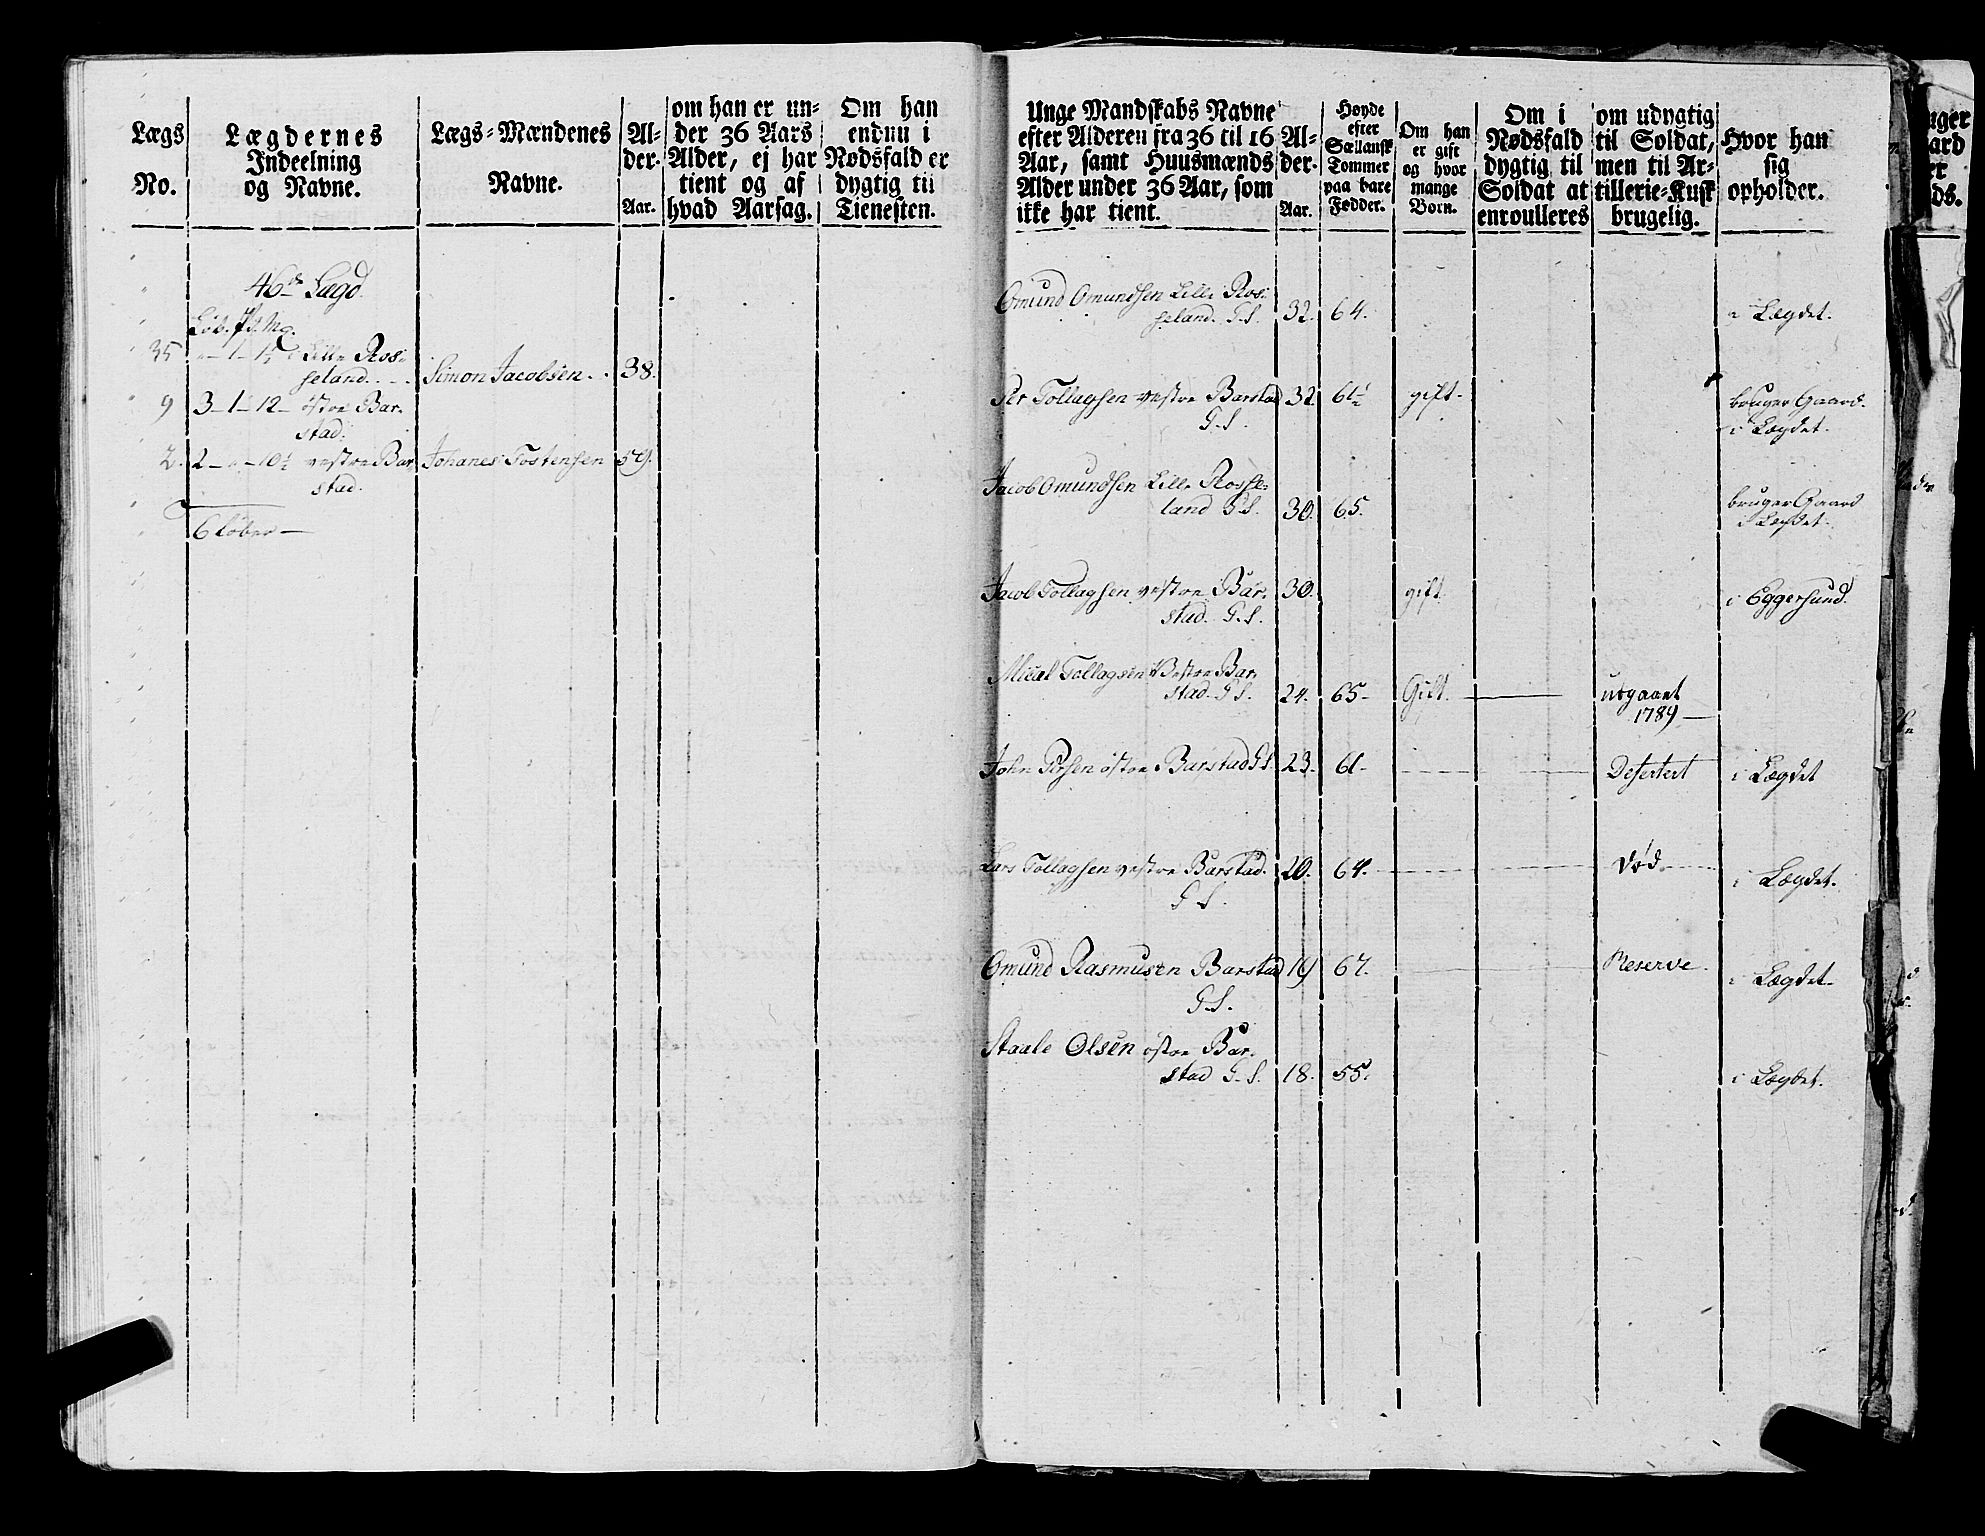 Lægs
No.
Lægdernes
Indeelning
og Navne.
Lægs-Mændenes
Navne.
Al-
der.
Aar.
om han er un-
der 36 Aars
Alder, ej har
tient og af
hvad Aarsag.
Om han
endnu i
Nødsfald er
dygtig til
Tienesten.
46de Lægd
Löb. Pd. Mg.
35 " - 1 - 1½ Lille Ros-
seland. - - Simon Jacobsen. . 38.
9 3 - 1 - 12 - östre Bar-
stad.
2. 2 - " - 10½ vestre Bar Johanes Tostensen 59.
stad.
6 Löber -
Unge Mandskabs Navne
efter Alderen fra 36 til 16
Aar, samt Huusmænds
Alder under 36 Aar, som
ikke har tient.
Al-
der.
Aar.
Høyde
efter
Sællansk
Tommer
paa bare
Fødder.
Om han
er gift
og hvor
mange
Børn.
Om i
Nødsfald
dygtig til
Soldat at
enroulleres
om udygtig
til Soldat,
men til Ar-
tillerie-Kusk
brugelig.
Hvor han
sig
opholder.
Omund Omundsen Lille Ros-
seland. G.S. 32. 64. i Lægdet.
Per Tollagsen vestre Barstad 32 61½ gift. bruger Gaard.
G.S. i Lægdet.
Jacob Omundsen Lille Rosse-
land G.S. 30. 65. bruger Gaard
i Lægdet.
Jacob Tollagsen vestre Bar- 30. gift. i Eggersund.
stad. G.S.
Micael Tollagsen Vestre Bar-
stad. G.S. 24. 65 - Gift. udgaaet
1789 -
John Persen östre Barstad G.S. 23. 61 - Desertert i Lægdet
Lars Tollagsen vestre Barstad. 20. 64. død. i Lægdet.
G.S.
Omund Rasmusen Barstad 19 67. Reserve. i Lægdet.
G.S.
Staale Olsen östre Bar-
stad G.S. 18. 55. i Lægdet.